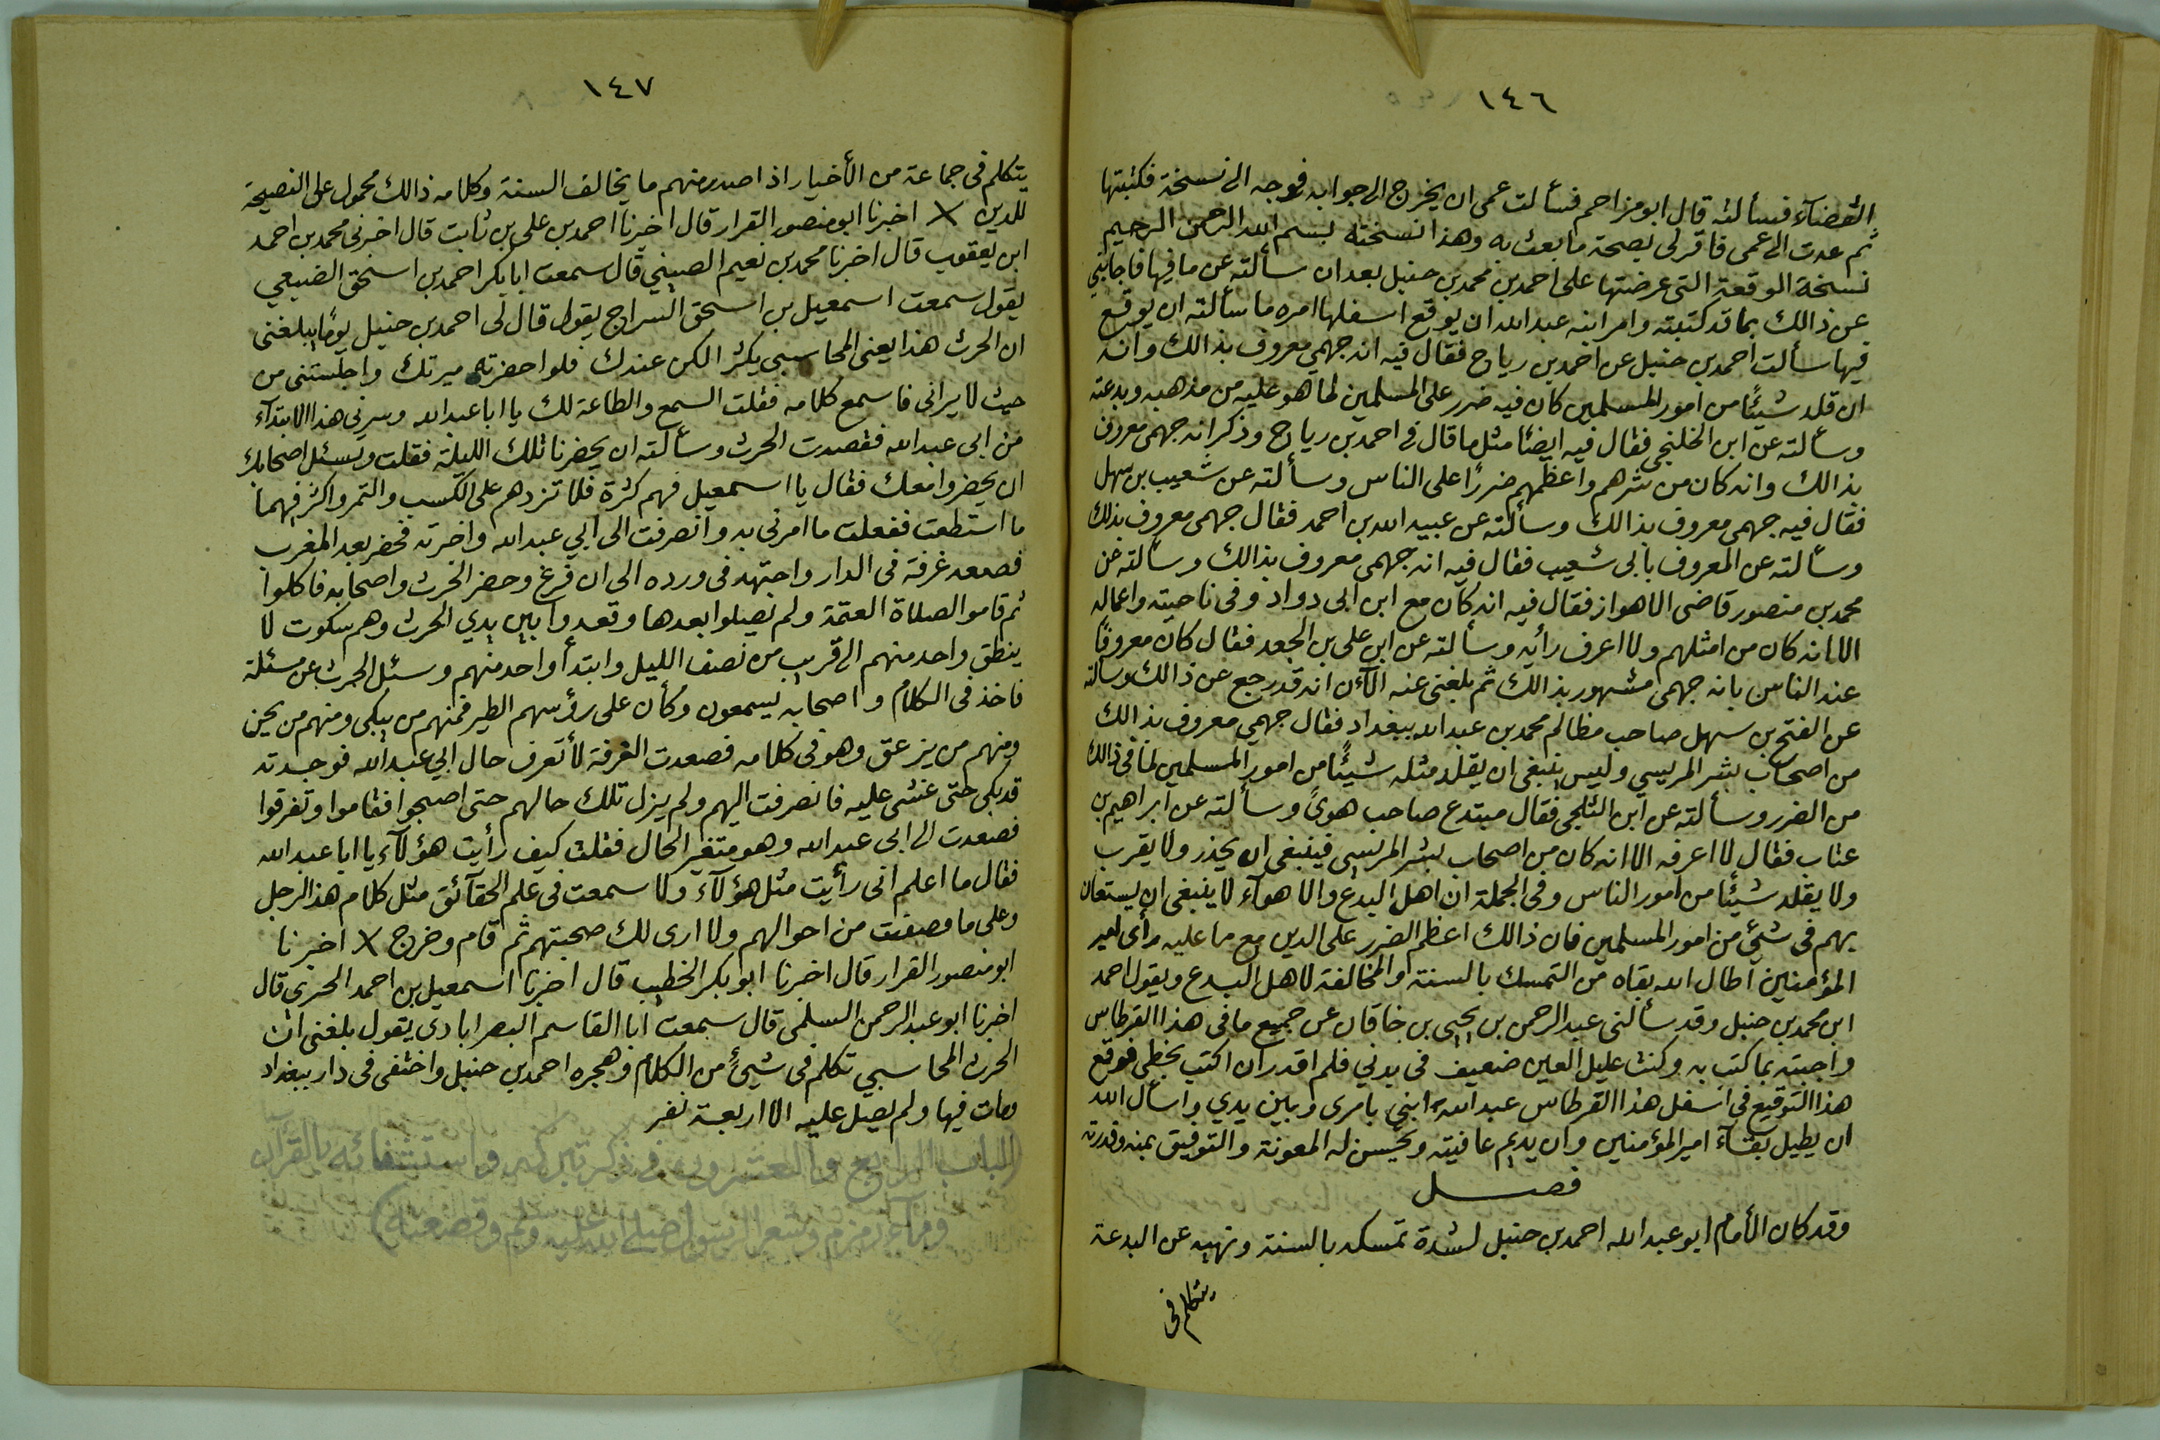 ١٤٦
القضاء فسألته قال ابو مزاحم فسألت عمى ان يخرج الى جوابه فوجه الى نسخة فكتبتها
ثم عدت الى عمى فاقر لى بصحة ما بعث به وهذا نسخته بسم الله الرحمن الرحيم
نسخة الرقعة التى عرضتها على احمد بن محمد بن حنبل بعد ان سألته عن ما فيها فاجابنى
عن ذالك بما قد كتبته وامر ابنه عبد الله ان يوقع اسفلها امره ما سألته ان يوقع
فيها سألت احمد بن حنبل عن احمد بن رياح فقال فيه انه جهمي معروف بذالك وانه
ان قلد شيئًا من امور المسلمين كان فيه ضرر على المسلمين لما هو عليه من مذهبه وبدعته
وسألته عن ابن الخلنجى فقال فيه ايضًا مثل ما قال فى احمد بن رياح وذكر انه جهمى معروف
بذالك وانه كان من شرهم واعظمهم ضررًا على الناس وسألته عن شعيب بن سهل
فقال فيه جهمى معروف بذالك وسألته عن عبيد الله بن احمد فقال جهمى معروف بذلك
وسألته عن المعروف بابى شعيب فقال فيه انه جهمى معروف بذالك وسألته عن
محمد بن منصور قاضى الاهواز فقال فيه انه كان مع ابن ابى دواد وفى ناحيته واعماله
الا انه كان من امثلهم ولا اعرف رأيه وسألته عن ابن على بن الجعد فقال كان معروفًا
عند الناس بانه جهمى مشهور بذالك ثم بلغنى عنه الآن انه قد رجع عن ذالك وسألته
عن الفتح بن سهل صاحب مظالم محمد بن عبد الله ببغداد فقال جهمي معروف بذالك
من اصحاب بشر المريسي وليس ينبغى ان يقلد مثله شيئًا من امور المسلمين لما فى ذالك
من الضرر وسألته عن ابن الثلجى فقال مبتدع صاحب هوىً وسألته عن ابراهيم بن
عتاب فقال لا اعرفه الا انه كان من اصحاب بشر المريسى فينبغى ان يحذر ولا يقرب
ولا يقلد شيئًا من امور الناس وفى الجملة ان اهل البدع والاهوآء لا ينبغى ان يستعان
بهم فى شئ من امور المسلمين فان ذالك اعظم الضرر على الدين مع ما عليه رأى امير
المؤمنين اطال الله بقاه من التمسك بالسنة والمخالفة لاهل البدع ويقول احمد
ابن محمد بن حنبل وقد سألنى عبد الرحمن بن يحيى بن خاقان عن جميع ما فى هذا القرطاس
واجبته بما كتب به وكنت عليل العين ضعيف فى بدني فلم اقدر ان اكتب بخطى فوقع
هذا التوقيع فى اسفل هذا القرطاس عبد الله ابني بامرى وبين يدي واسأل الله
ان يطيل بقآء امير المؤمنين وان يديم عافيته ويحسن له المعونة والتوفيق بمنه وقدرته
فصل
وقد كان الأمام ابو عبد الله احمد بن حنبل لشدة تمسكه بالسنة ونهيه عن البدعة
يتكلم فى
١٤٧
يتكلم فى جماعة من الأخيار اذا صدر منهم ما يخالف السنة وكلامه ذالك محمول على النصيحة
للدين X اخبرنا ابو منصور القرار قال اخبرنا احمد بن على بن ثابت قال اخبرنى محمد بن احمد
ابن يعقوب قال اخبرنا محمد بن نعيم الصبيني قال سمعت ابا بكر احمد بن اسحق الضبيعي
يقول سمعت اسمعيل بن اسحق السراج يقول قال لى احمد بن حنبل يومًا يبلغنى
ان الحرث هذا يعنى المحاسبي يكثر الكن عندك فلو احضرته ميرتك واجلستنى من
حيث لا يرانى فاسمع كلامه فقلت السمع والطاعة لك يا ابا عبد الله وسرنى هذا الابتدآء
من ابى عبد الله فقصدت الحرث وسألته ان يحضرنا تلك الليلة فقلت ويسئل اصحابك
ان يحضروا معك فقال يا اسمعيل فهم كثرة فلا تزدهم على الكسب والتمر واكثر فهما
ما استطعت ففعلت ما امرنى به وانصرفت الى ابي عبد الله واخبرته فحضر بعد المغرب
فصعد غرفة فى الدار واجتهد فى ورده الى ان فرغ وحضر الحرث واصحابه فاكلوا
ثم قاموا لصلاة العتمة ولم يصلوا بعدها وقعدوا بين يدي الحرث وهم سكوت لا
ينطق واحد منهم الى قريب من نصف الليل وابتدأ واحد منهم وسئل الحرث عن مسئلة
فاخذ فى الكلام واصحابه يسمعون وكأن على رؤسهم الطير فمنهم من يبكى ومنهم من يحن
ومنهم من يزعق وهو فى كلامه فصعدت الغرفة لأتعرف حال ابي عبد الله فوجدته
قد بكى حتى غشى عليه فانصرفت اليهم ولم يزل تلك حالهم حتى اصبحوا فقاموا وتفرقوا
فصعدت الى ابى عبد الله وهو متغير الحال فقلت كيف رأيت هؤلآء يا ابا عبد الله
فقال ما اعلم انى رأيت مثل هؤلآء ولا سمعت فى علم الحقآئق مثل كلام هذا الرجل
وعلى ما وصفت من احوالهم ولا ارى لك صحبتهم ثم قام وخرج X اخبرنا
ابو منصور القرار قال اخبرنا ابو بكر الخطيب قال اخبرنا اسمعيل بن احمد الحيرى قال
اخبرنا ابو عبد الرحمن السلمى قال سمعت ابا القاسم البصرابادى يقول بلغنى ان
الحرث المحاسبي تكلم فى شيئ من الكلام وهجره احمد بن حنبل واختفى فى دار ببغداد
ومات فيها ولم يصل عليه الا اربعة نفر
(الباب الرابع والعشرون فى ذكر تبركه واستشفائه بالقرآن
وماء زمزم وشعر الرسول صلى الله عليه وسلم وقصعته)